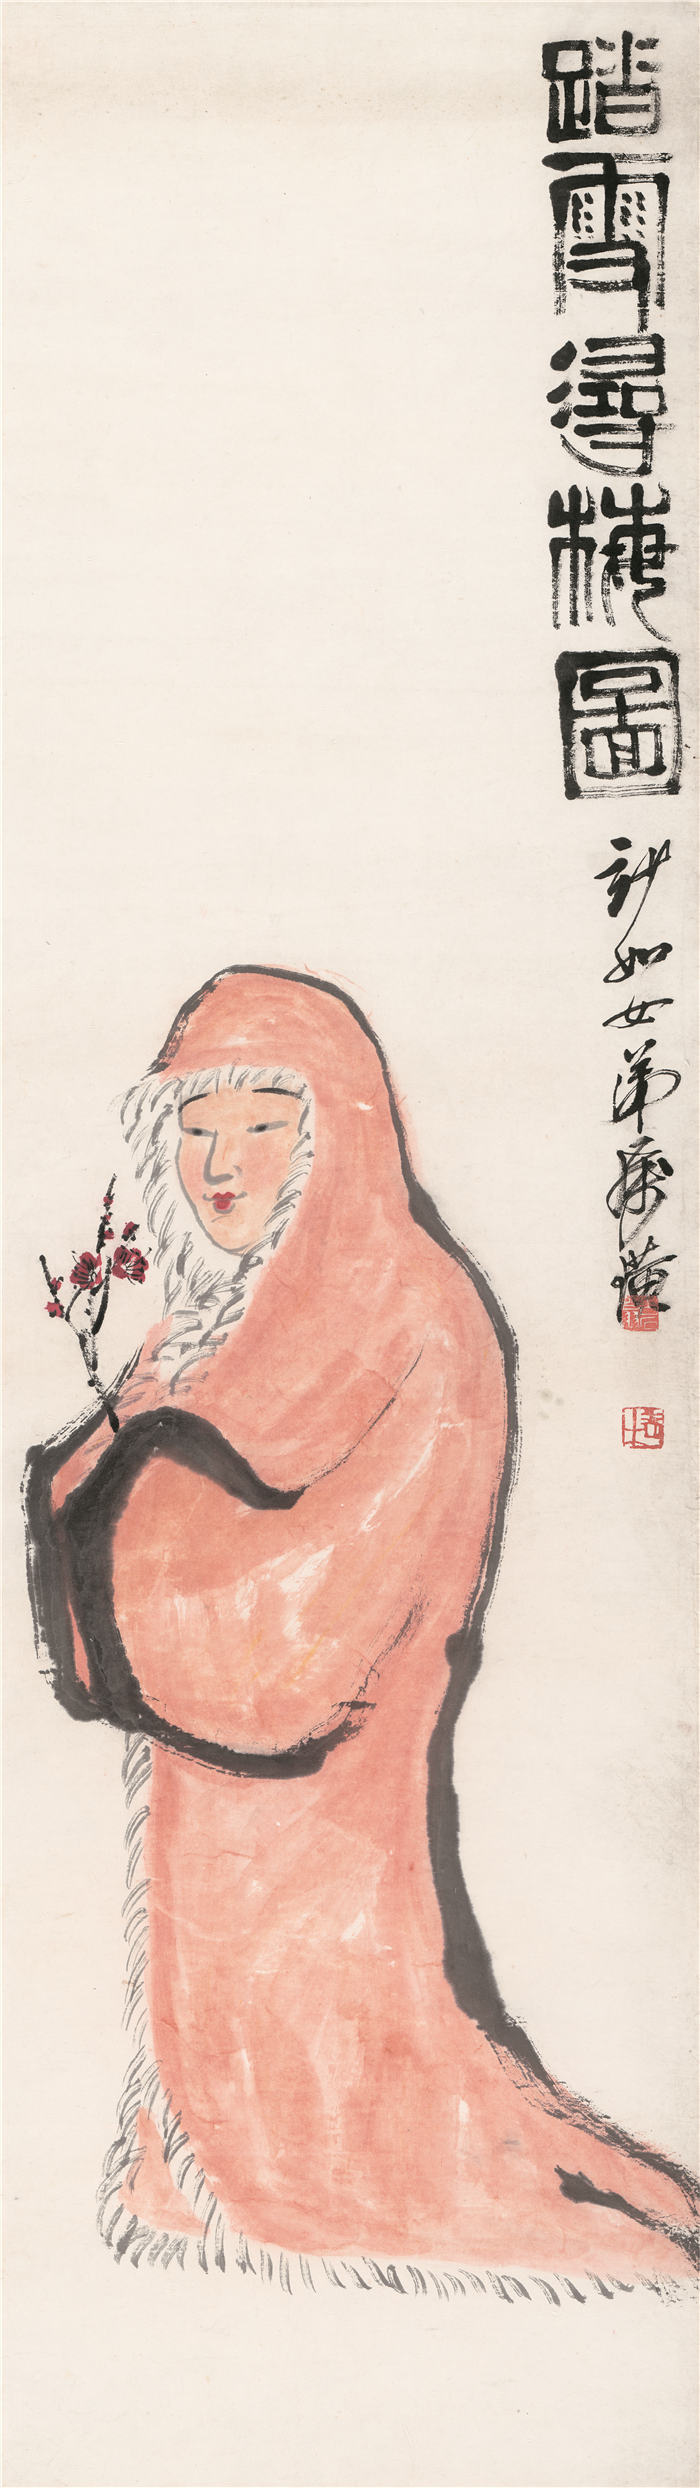 踏雪尋梅圖
計如女弟屬璜